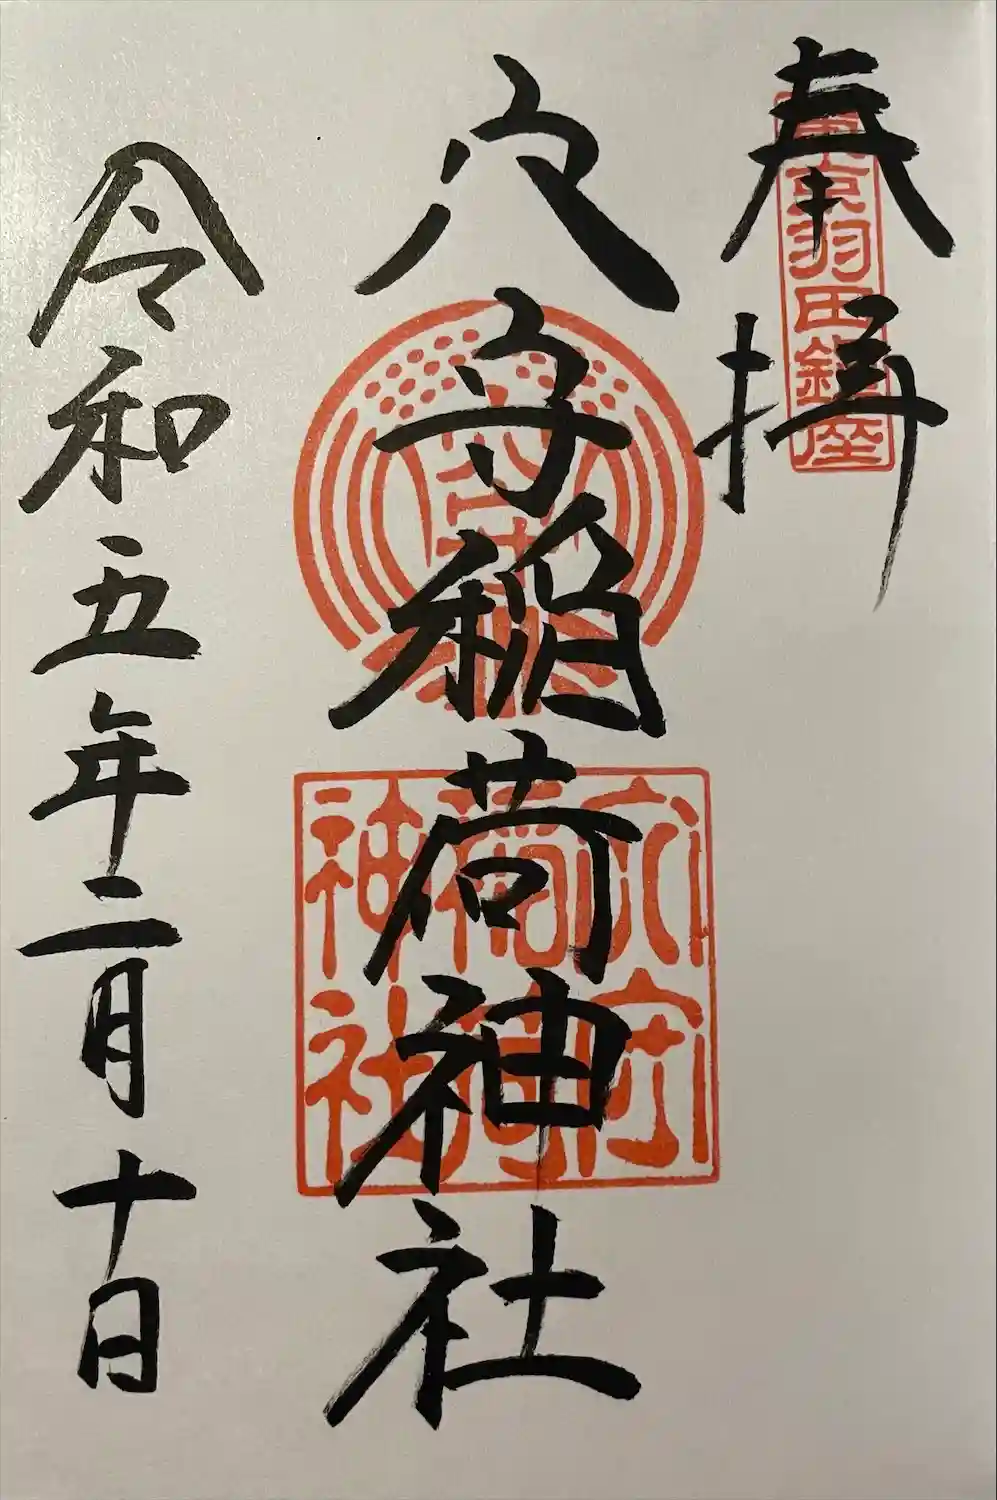 奉拝
東京羽田鎮座
穴守稲荷神社
穴守
稲荷
神社
令和五年二月十日